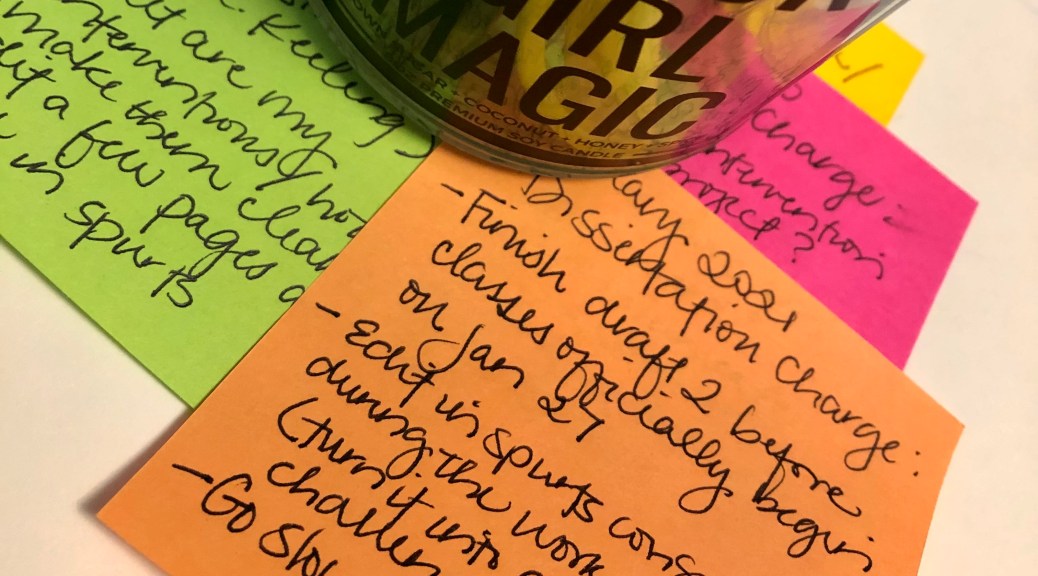 Keeping
are my
interventions/how
make them clear
a few pages a
in
spurts
GIRL
MAGIC
COCONUT • HONEY
PREMIUM SOY CANDLE
charge:
intervention
project?
2021
Dissertation charge:
- Finish draft 2 before
classes officially begin
on Jan 27
- Edit in spurts cons
during the work
(turn it into a
challen
- Go Slow